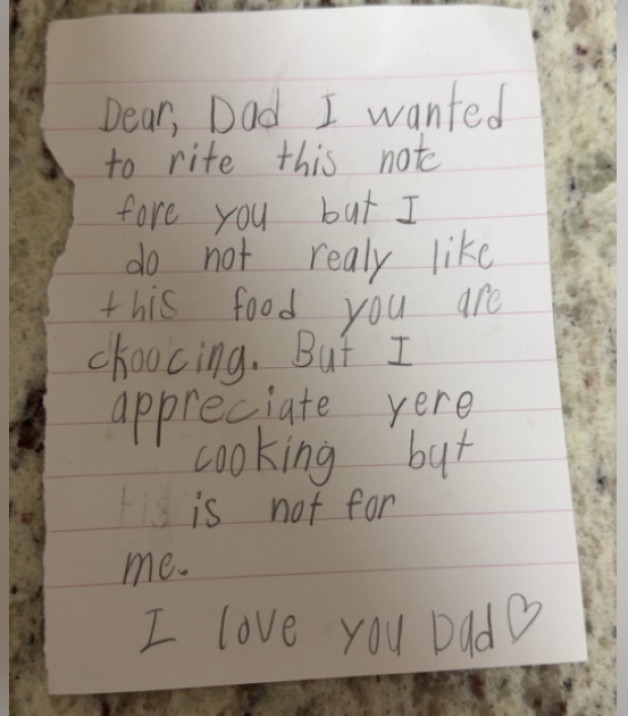 Dear, Dad I wanted
to rite this note
fore you but I
do not realy like
this food you are
choocing. But I
appreciate yere
cooking but
is not for
me.
I love you Dad♡